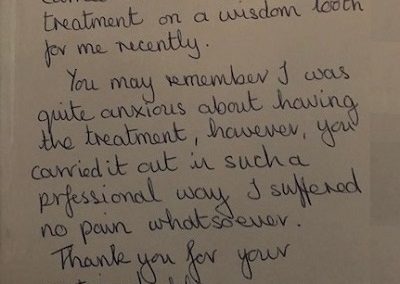 treatment on a wisdom tooth
for me recently.
You may remember I was
quite anxious about having
the treatment, however, you
carried it out in such a
prfessional way I suffered
no pain whatsoever.
Thank you for your